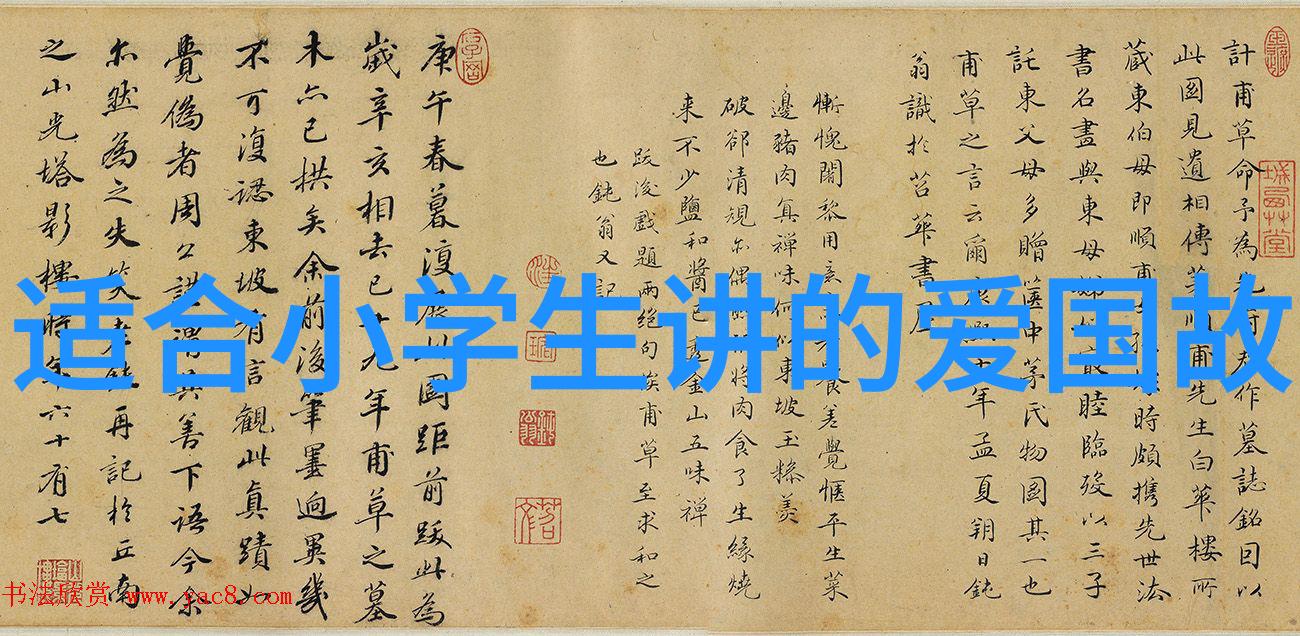 适合小学生讲的爱国故
計甫草命予為先府君作墓誌銘因以
此圖見遺相傳順甫先生白華樓所
蔵東伯母即順甫女孫時頗攜先世法
書名畫與東母最睦臨歿以三子
託東父母多贈篋中茅氏物圖其一也
甫草之言云爾十年孟夏朔日鈍
翁識於苕華書屋
慚愧闍黎用養差覺愜平生菜
邊豬肉真禪味何似東坡玉糝羹
破卻清規亦偶將肉食了生緣燒
来不少鹽和醬已金山五味禪
跋後戲題兩絕句俟甫草至求和之
也鈍翁又記
庚午春暮復展此圖距前跋此為
歲辛亥相去已廿九年甫草之墓
木亦已拱矣余前後筆墨迥異幾
不可復認東坡有言觀此真蹟如
覺偽者周公謹謂其善下語今余
亦然為之失笑再記於丘南
之山光塔影樓時年六十有七
书法欣赏 www.yac8.com